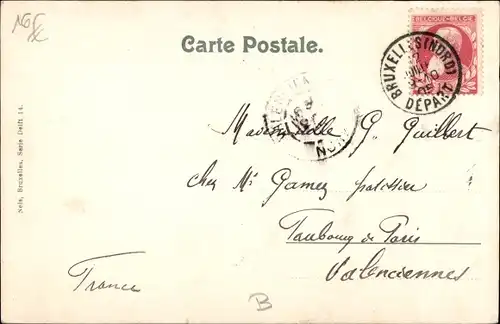 Carte Postale.
BELGIQUE-BELGIË
BRUXELLES (NORD)
DÉPART
NORD
Mademoiselle G. Guilbert
chez Mr Gamez
Faubourg de Paris
Valenciennes
France
B
Nels, Bruxelles, Serie Delft 14.